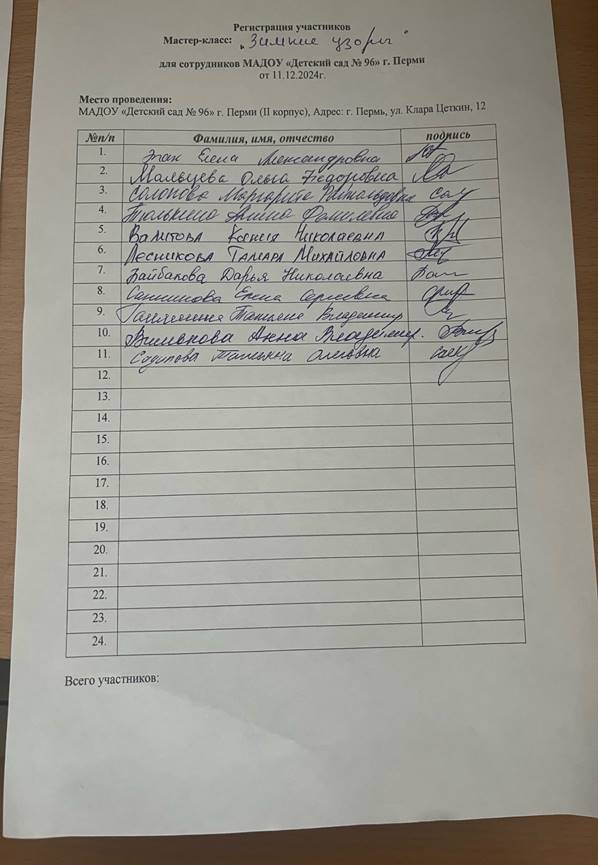 Регистрация участников
Мастер-класс: „Зимние узоры"
для сотрудников МАДОУ «Детский сад № 96» г. Перми
от 11.12.2024г.
Место проведения:
МАДОУ «Детский сад № 96» г. Перми (II корпус), Адрес: г. Пермь, ул. Клара Цеткин, 12
№п/п Фамилия, имя, отчество подпись
1. Елена Александровна
2. Мальцева Ольга Федоровна
3. Маргарита
4. Фаилевна
5. Валитова Ксения Николаевна
6. Лесникова Тамара Михайловна
7. Зайбакова Дарья Николаевна
8. Елена Сергеевна
9. Татьяна
10. Анна Владимир.
11. Садипова Татьяна
12.
13.
14.
15.
16.
17.
18.
19.
20.
21.
22.
23.
24.
Всего участников: